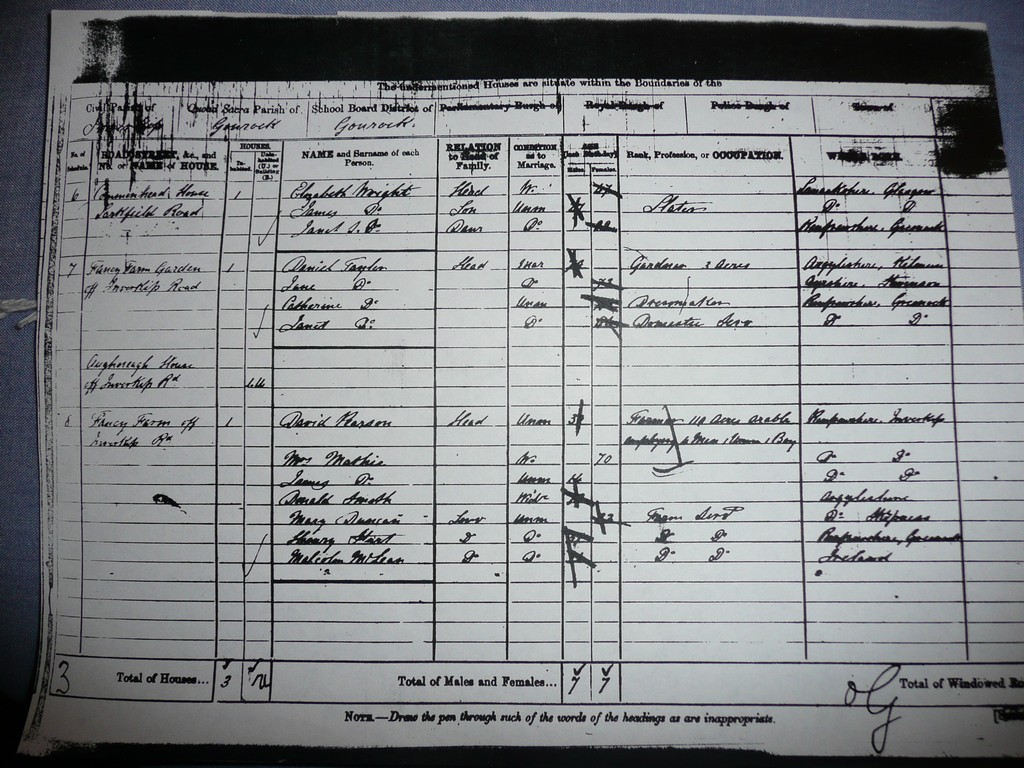 The undermentioned Houses are situate within the Boundaries of the
Civil Parish of Quoad Sacra Parish of School Board District of Parliamentary Burgh of Royal Burgh of Police Burgh of Town of
Gourock Gourock.
No. of Schedule. ROAD, STREET, &c., and No. or NAME of HOUSE. HOUSES. Inhabited. NAME and Surname of each Person. RELATION to Head of Family. CONDITION as to Marriage. AGE (last Birthday) Males. Females. Rank, Profession, or OCCUPATION. WHERE BORN.
6 House 1 Elizabeth Wright Head W. 47 Lanarkshire, Glasgow
Larkfield Road James Do Son Unmr Slater Do Do
Janet S. Do Daur Do Renfrewshire, Greenock
7 Fancy Farm Garden 1 Daniel Taylor Head Mar Gardner 2 Acres Argyleshire,
off Inverkip Road Jane Do Do Ayrshire,
Catherine Do Unm Dressmaker Renfrewshire, Greenock
Janet Do Domestic Serv Do Do
House
off Inverkip Rd
8 Fancy Farm off 1 David Pearson Head Unm Farmer 110 Acres arable Renfrewshire, Inverkip
Inverkip Rd employing 4 Men 1 Woman 1 Boy
Mrs Mathie W. 70 Do Do
James Do Unm Do Do
Donald Smith Widr Argyleshire
Mary Duncan Serv Unm 22 Farm Servt Do Skipness
Henry Do Do Do Do Renfrewshire, Greenock
Malcolm McLean Do Do Do Do Ireland
3 Total of Houses... 3 Total of Males and Females... 7 7 Total of Windowed
NOTE.—Draw the pen through such of the words of the headings as are inappropriate.